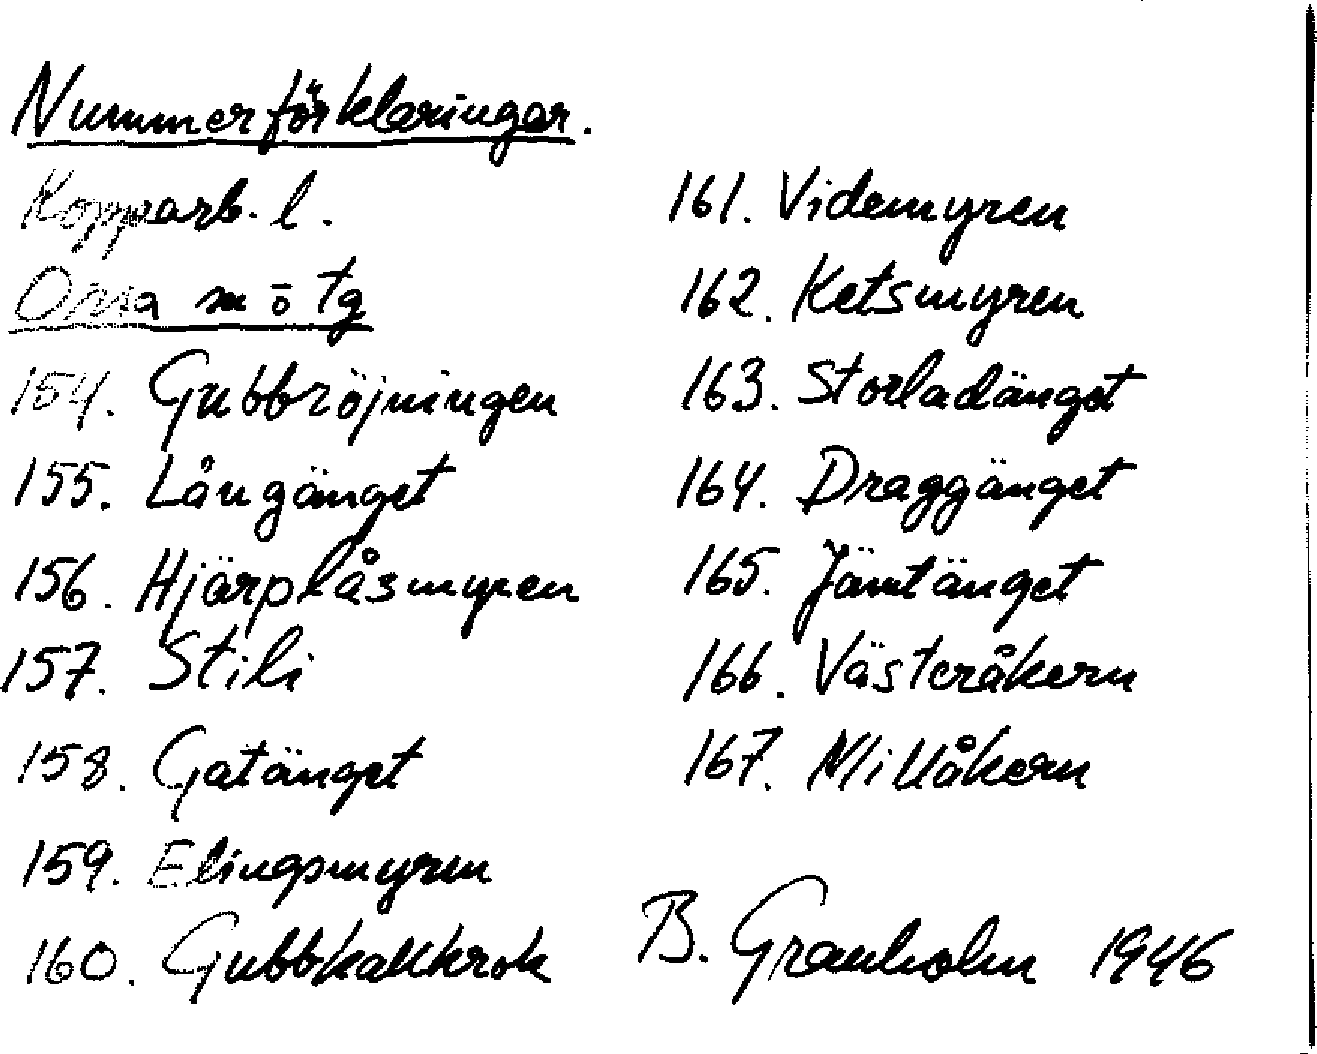 Nummerförklaringar.
Kopparb. l.
Orsa sn ö tg
154. Gubbröjningen
155. Långänget
156. Hjärplåsmyren
157. Stili
158. Gatänget
159. Elingsmyren
160. Gubbkallkrok
161. Videmyren
162. Ketsmyren
163. Storladänget
164. Draggänget
165. Jämtänget
166. Västeråkern
167. Millåkern
B. Granholm 1946